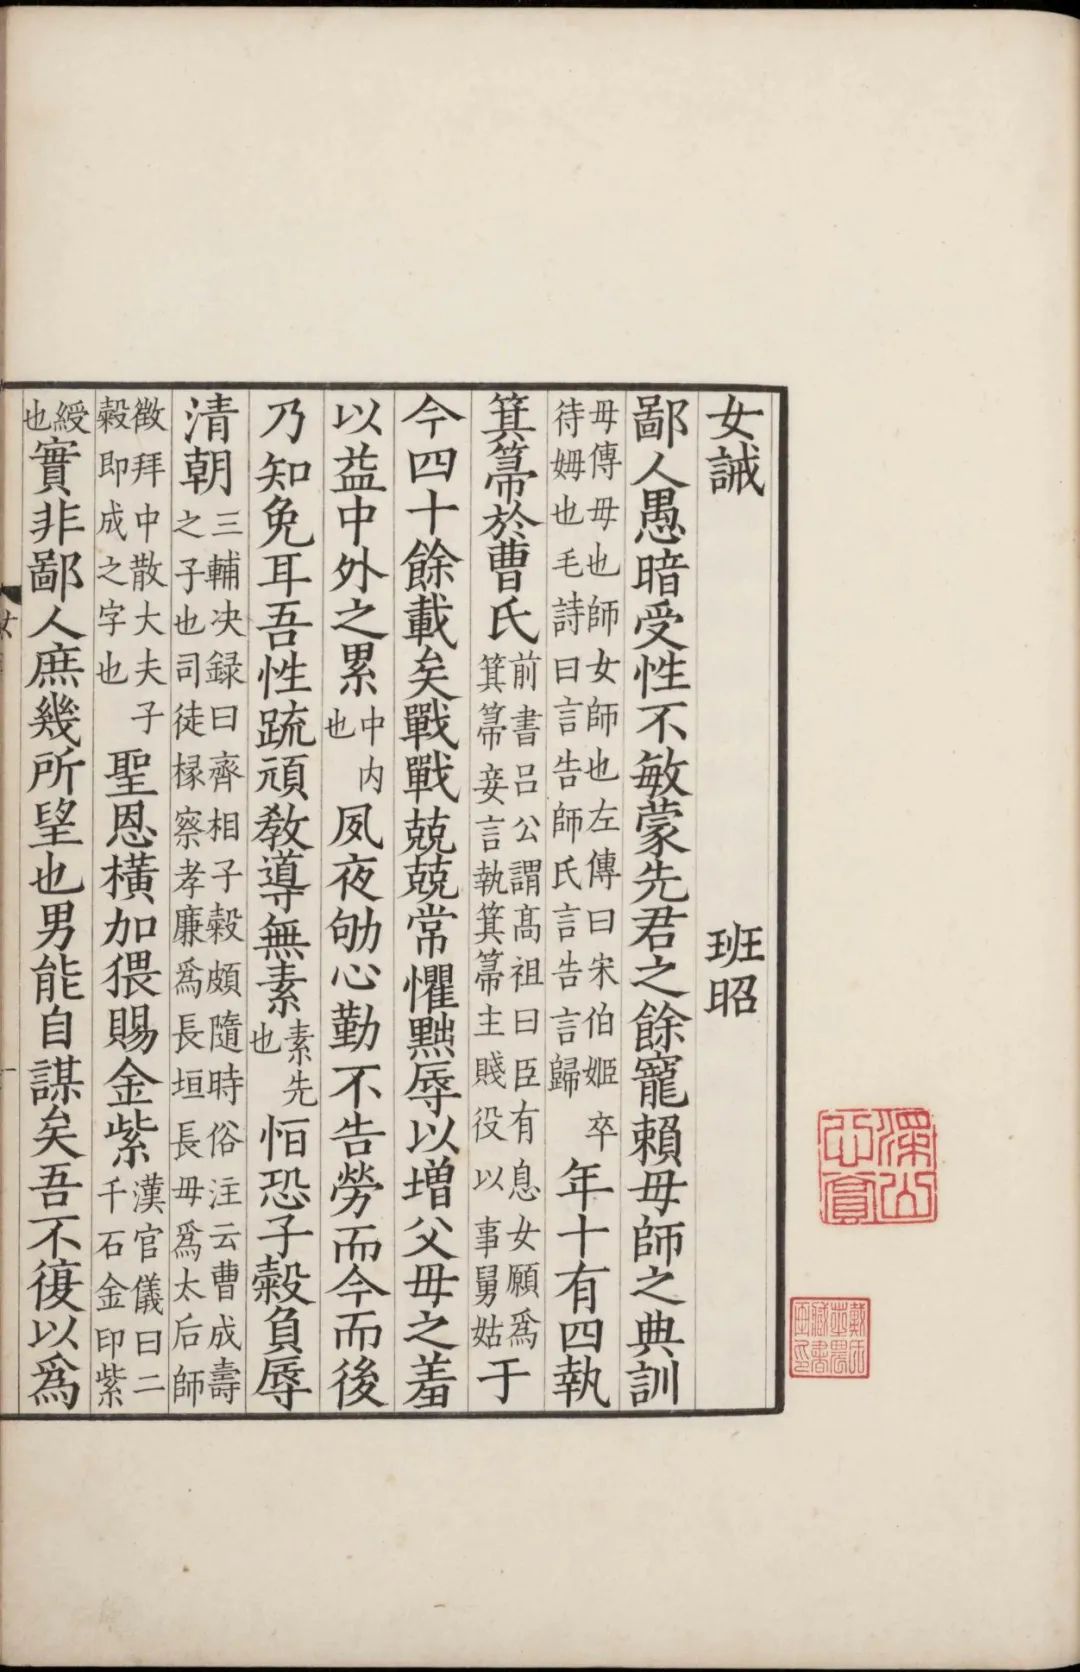 女誡　班昭
鄙人愚暗受性不敏蒙先君之餘寵賴毋師之典訓
毋傳毋也師女師也左傳曰宋伯姬卒待姆也毛詩曰言告師氏言告言歸年十有四執
箕箒於曹氏前書呂公謂髙祖曰臣有息女願爲箕箒妾言執箕箒主賤役以事舅姑于
今四十餘載矣戰戰兢兢常懼黜辱以增父毋之羞
以益中外之累中内也夙夜劬心勤不告勞而今而後
乃知免耳吾性疏頑教導無素素先也恒恐子穀負辱
清朝三輔决録曰齊相子穀頗隨時俗注云曹成壽之子也司徒掾察孝廉爲長垣長毋爲太后師
徵拜中散大夫子穀即成之字也聖恩橫加猥賜金紫漢官儀曰二千石金印紫
綬也實非鄙人庶幾所望也男能自謀矣吾不復以爲